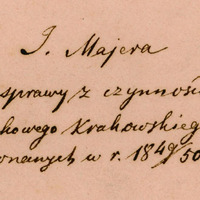 J. Majera
sprawy z czynnośc
kowego Krakowskieg
onanych w r. 1849/50